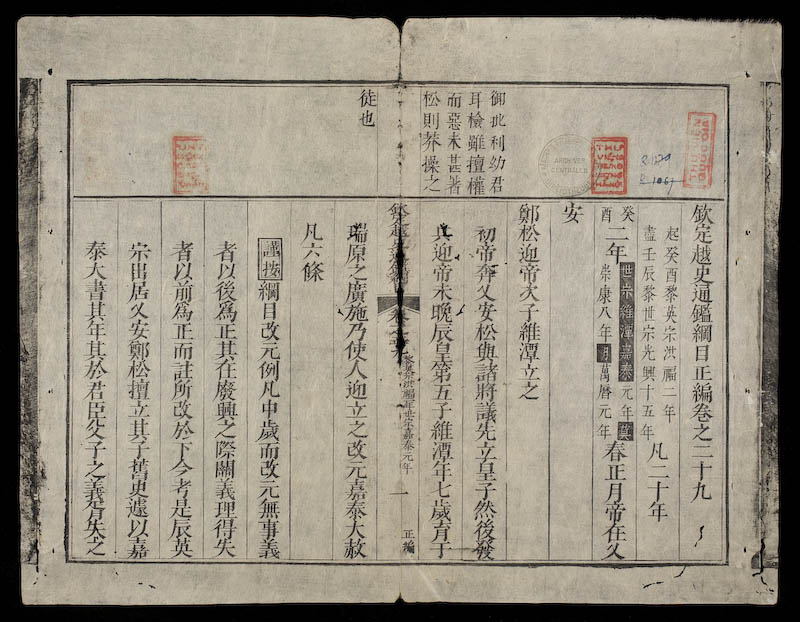 欽定越史通鑑綱目正編卷之二十九
起癸酉黎英宗洪福二年
盡壬辰黎世宗光興十五年
凡二十年
癸酉
二年
世宗維潭嘉泰元年莫
崇康八年明萬曆元年
春正月帝在乂
安
鄭松迎帝次子維潭立之
御批利幼君
耳檢雖擅權
而惡未甚著
松則莽操之
徒也
初帝奔乂安松與諸將議先立皇子然後發
兵迎帝未晚辰皇第五子維潭年七歲育于
欽定越史通鑑綱目
卷之二十九
黎英宗洪福二年世宗嘉泰元年
一
正編
瑞原之廣施乃使人迎立之改元嘉泰大赦
凡六條
謹按綱目改元例凡中歲而改元無事義
者以後爲正其在廢興之際關義理得失
者以前爲正而註所改於下今考是辰英
宗出居乂安鄭松擅立其子舊史遽以嘉
泰大書其年其於君臣父子之義胥失之
THƯ
VIỆN
ARCHIVES
CENTRALES